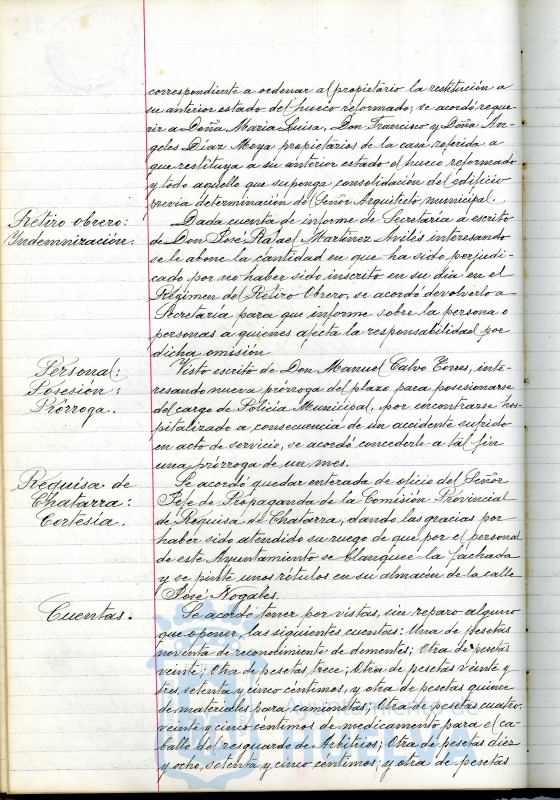 correspondiente a ordenar al propietario la restitución a
su anterior estado del hueco reformado, se acordó reque-
rir a Doña María Luisa, Don Francisco y Doña An-
geles Díaz Moya propietarios de la casa referida a
que restituya a su anterior estado el hueco reformado
y todo aquello que suponga consolidación del edificio
previa determinación del Señor Arquitecto municipal.
Retiro obrero:
Indemnización.
Dada cuenta de informe de Secretaria a escrito
de Don José Rafael Martínez Avilés interesando
se le abone la cantidad en que ha sido perjudi-
cado por no haber sido inscrito en su dia en el
Régimen del Retiro Obrero, se acordó devolverlo a
Secretaria para que informe sobre la persona o
personas a quienes afecta la responsabilidad por
dicha omisión
Personal:
Posesión:
Prórroga.
Visto escrito de Don Manuel Calvo Torres, inte-
resando nueva prórroga del plazo para posesionarse
del cargo de Policía Municipal, por encontrarse hos-
pitalizado a consecuencia de un accidente sufrido
en acto de servicio, se acordó concederle a tal fin
una prórroga de un mes.
Requisa de
Chatarra:
Cortesía.
Se acordó quedar enterada de oficio del Señor
Jefe de Propaganda de la Comisión Provincial
de Requisa de Chatarra, dando las gracias por
haber sido atendido su ruego de que por el personal
de este Ayuntamiento se blanqueé la fachada
y se pinte unos rótulos en su almacén de la calle
José Nogales.
Cuentas.
Se acordó tener por vistas, sin reparo alguno
que oponer, las siguientes cuentas: Una de pesetas
noventa de reconocimiento de dementes; Otra de pesetas
veinte; Otra de pesetas trece; Otra de pesetas veinte y
tres, setenta y cinco céntimos, y otra de pesetas quince
de materiales para camionetas; Otra de pesetas cuatro,
veinte y cinco céntimos de medicamento para el ca-
ballo del resguardo de Arbitrios; Otra de pesetas diez
y ocho, setenta y cinco céntimos; y otra de pesetas